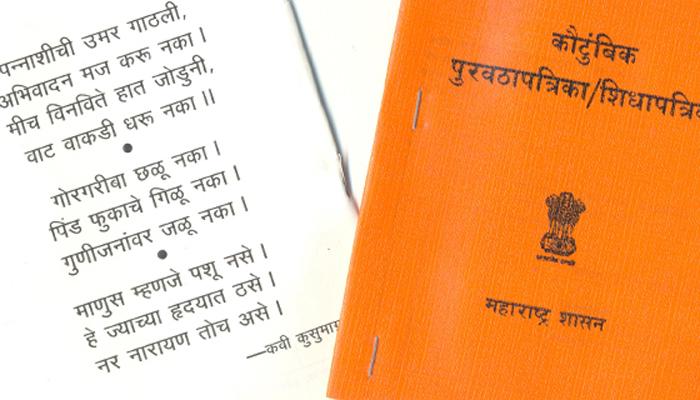 पन्नाशीची उमर गाठली,
अभिवादन मज करू नका ।
मीच विनविते हात जोडुनी,
वाट वाकडी धरू नका ॥
गोरगरीबा छळू नका ।
पिंड फुकाचे गिळू नका ।
गुणीजनांवर जळू नका ।
माणुस म्हणजे पशू नसे ।
हे ज्याच्या हृदयात ठसे ।
नर नारायण तोच असे ।
—कवी
कौटुंबिक
पुरवठापत्रिका/
महाराष्ट्र शासन